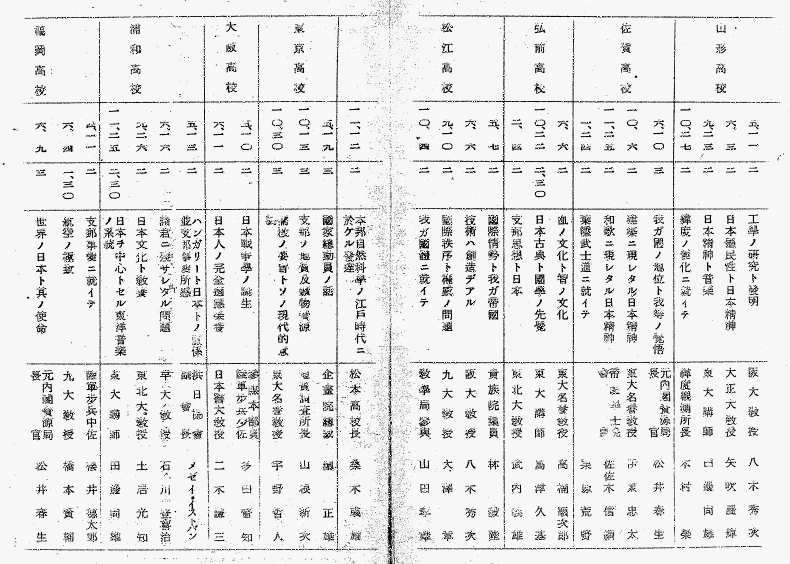 山形高校
五、二一 二 工學ノ研究ト發明 阪大教授 八木秀次
六、三 二 日本國民性ト日本精神 大正大教授 矢吹慶輝
九、二三 二 日本精神ト音樂 東大講師 田邊尚雄
一〇、二七 二 緯度ノ變化ニ就イテ 緯度觀測所長 木村榮
佐賀高校
六、一〇 三 我ガ國ノ地位ト我等ノ覺悟 元內閣資源局長官 松井春生
一〇、六 二 建築ニ現レタル日本精神 東大名譽教授 伊東忠太
一一、二五 二 和歌ニ現レタル日本精神 佐佐木信綱
一、二四 二 葉隱武士道ニ就イテ 栗原荒野
弘前高校
六、六 二 血ノ文化ト智ノ文化 東大名譽教授 高楠順次郎
一〇、二二 二、三〇 日本古典ト國學ノ先覺 東大講師 久基
二、四 二 支那思想ト日本 東北大教授 武內義雄
松江高校
五、七 二 國際情勢ト我ガ帝國 貴族院議員 林毅陸
六、六 二 技術ハ創造デアル 阪大教授 八木秀次
九、一〇 二 國際秩序ト權威ノ問題 九大教授 大澤章
一〇、四 二 我ガ國體ニ就イテ 教學局參與 山田孝雄
一一、二 二 本邦自然科學ノ江戶時代ニ於ケル發達 松本高校長
東京高校
五、一九 三 國家總動員ノ話 企畫院 正雄
一〇、一三 三 支那ノ地質及鑛物資源 地質調査所長 山根新次
一〇、二〇 三 ノ要旨トソノ現代的意 東大名譽教授 宇野哲人
大阪高校
五、一〇 二 日本戰爭學ノ誕生 參謀本部員陸軍步兵少佐 多田督知
六、一一 二 日本人ノ完全 榮養 日本醫大教授 二木謙三
浦和高校
五、一三 三 ハンガリート日本トノ關係並支那事變所感 メゼイ・イストバン
六、六 二 諸君ニ殘サレタル問題 早大教授 石川
九、二六 二 日本文化ト敎養 東北大教授 土居光知
一一、二五 二、三〇 日本ヲ中心トセル東洋音樂ノ系統 東大講師 田邊尚雄
福岡高校
二 支那事變ニ就イテ 陸軍步兵中佐 德太郎
六、四 一、三〇 航空ノ 九大教授 橋本寅輔
六、九 三 世界ノ日本ト其ノ使命 元內閣資源局長官 松井春生